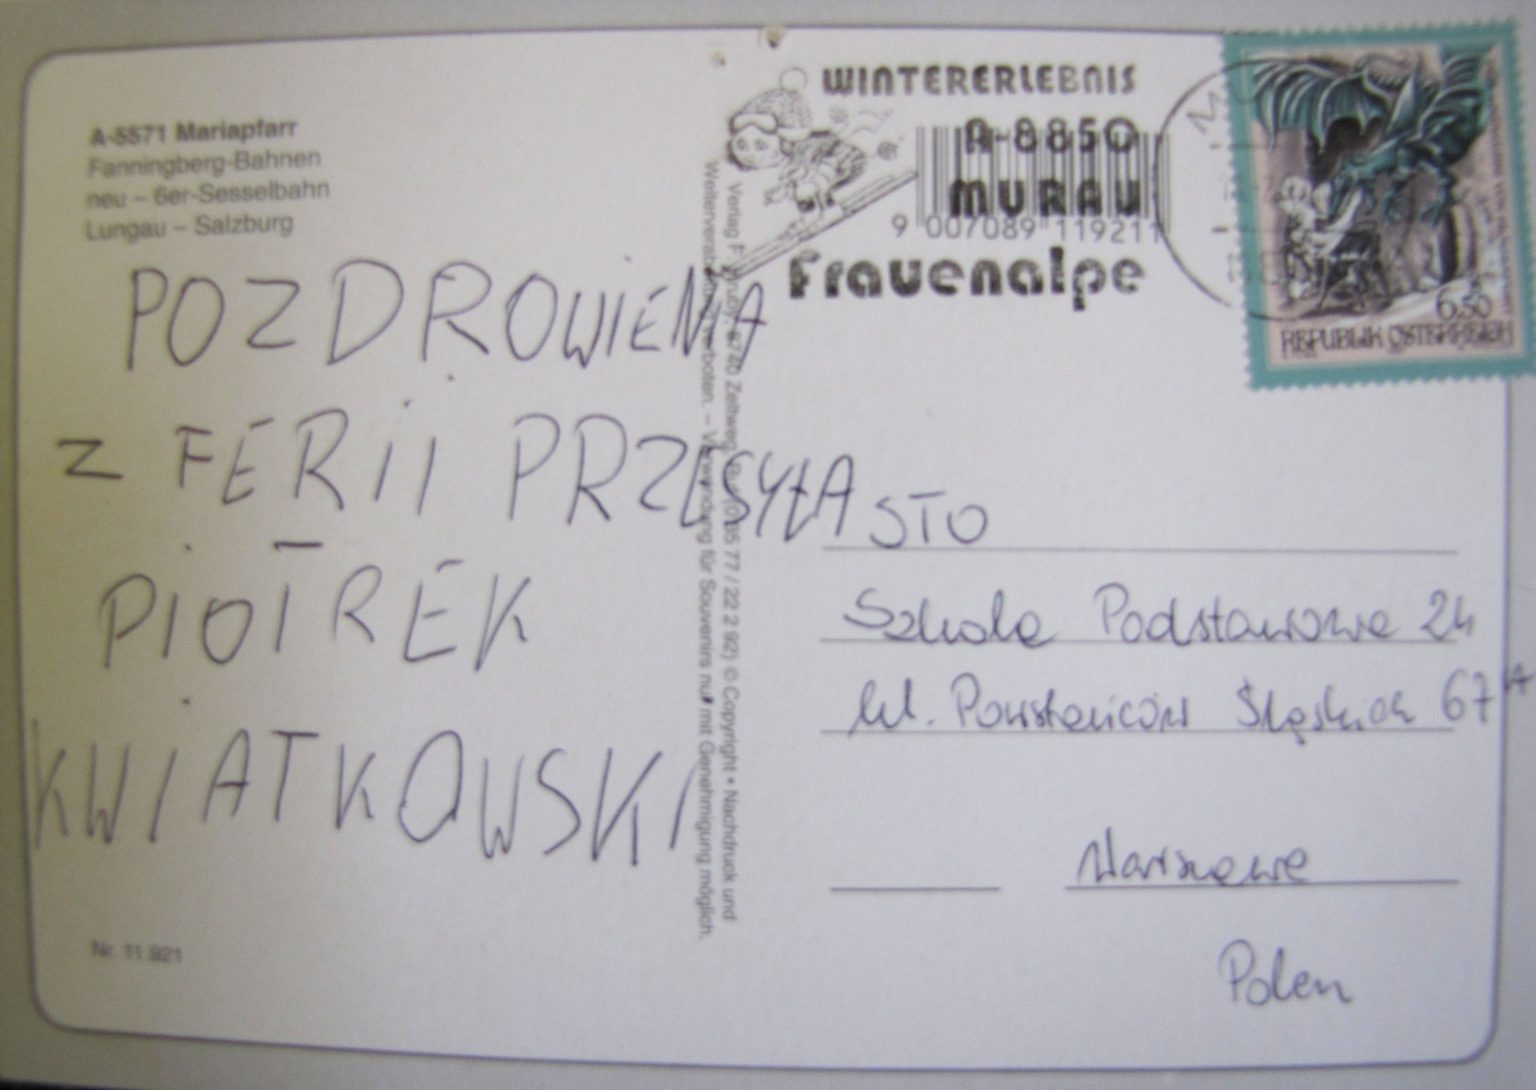 A-5571 Mariapfarr
Fanningberg-Bahnen
neu – 6er-Sesselbahn
Lungau – Salzburg
POZDROWIENIA
Z FERII PRZESYŁA
PIOTREK
KWIATKOWSKI
Nr. 11.921
Verlag 8740 Zeltweg 77 / 22 2 92) © Copyright • Nachdruck und
verboten. – Verwendung für Souvenirs nur mit Genehmigung möglich.
WINTERERLEBNIS
A-8850
MURAU
9 007089 119211
Frauenalpe
6.50
REPUBLIK ÖSTERREICH
STO
Szkoła Podstawowa 24
ul. Powstańców Śląskich 67A
Warszawa
Polen